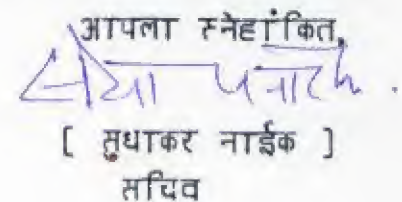 आपला स्नेहांकित,
[ सुधाकर नाईक ]
सचिव